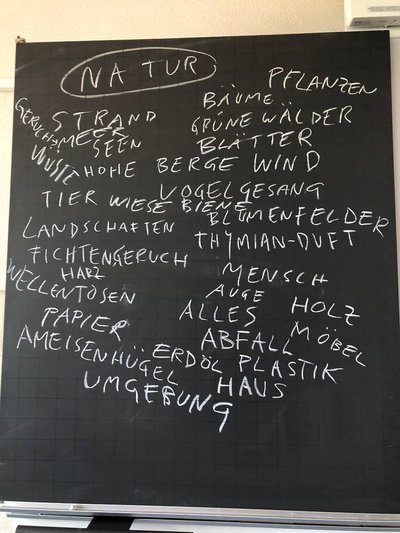 NATUR
PFLANZEN
BÄUME
GERUCH STRAND GRÜNE WÄLDER
MEER SEEN BLÄTTER
HOHE BERGE WIND
VOGELGESANG
TIER WIESE BIENE BLUMENFELDER
LANDSCHAFTEN THYMIAN-DUFT
FICHTENGERUCH
HARZ MENSCH
WELLENTOSEN AUGE
ALLES HOLZ
PAPIER ABFALL MÖBEL
AMEISENHÜGEL ERDÖL PLASTIK
UMGEBUNG HAUS